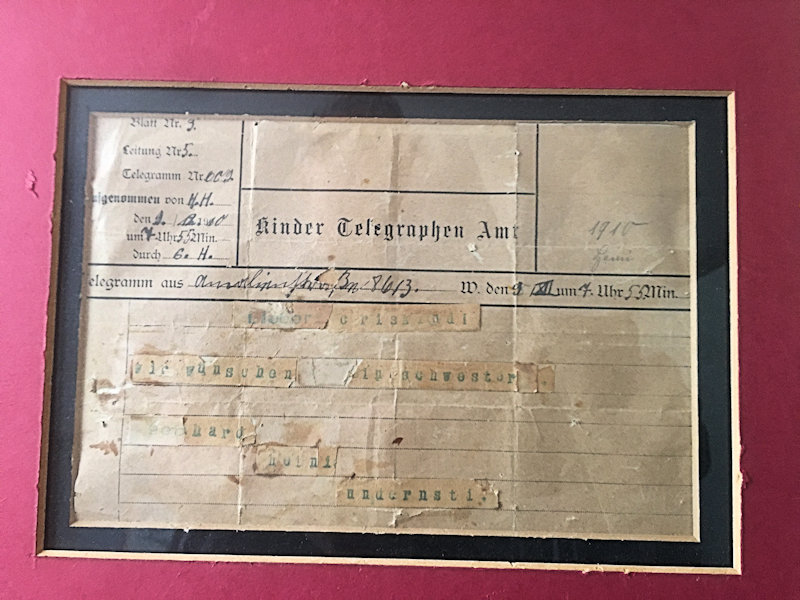 Blatt Nr. 9.
Leitung Nr 5.
Telegramm Nr. 002
ufgenommen von H. H.
den 2.
um 7 Uhr 55 Min.
durch G. H.
Kinder Telegraphen Amt
1910
elegramm aus Amalienstraße W. den um 7. Uhr 55 Min.
lieber cristkindl
wir wünschen ein schwester
hard
heini
und ernsti